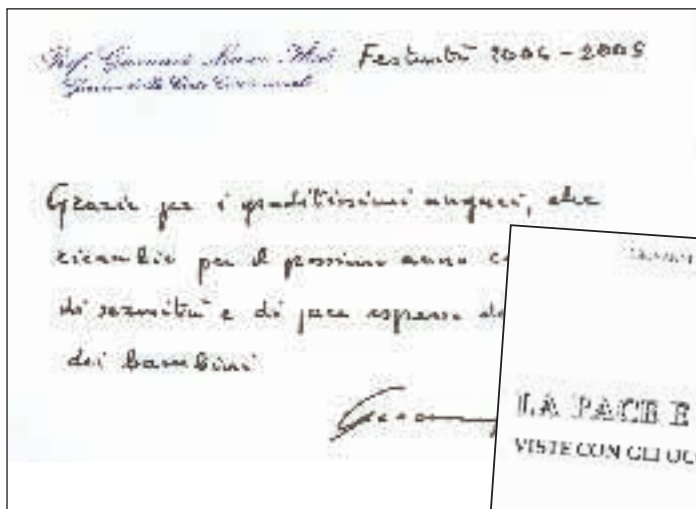 Prof. Giovanni Maria Flick Festività 2004-2005
Giudice della Corte Costituzionale
Grazie per i graditissimi auguri, che
ricambio per il prossimo anno
di serenità e di pace espresse
dei bambini
LA PACE E
VISTE CON GLI